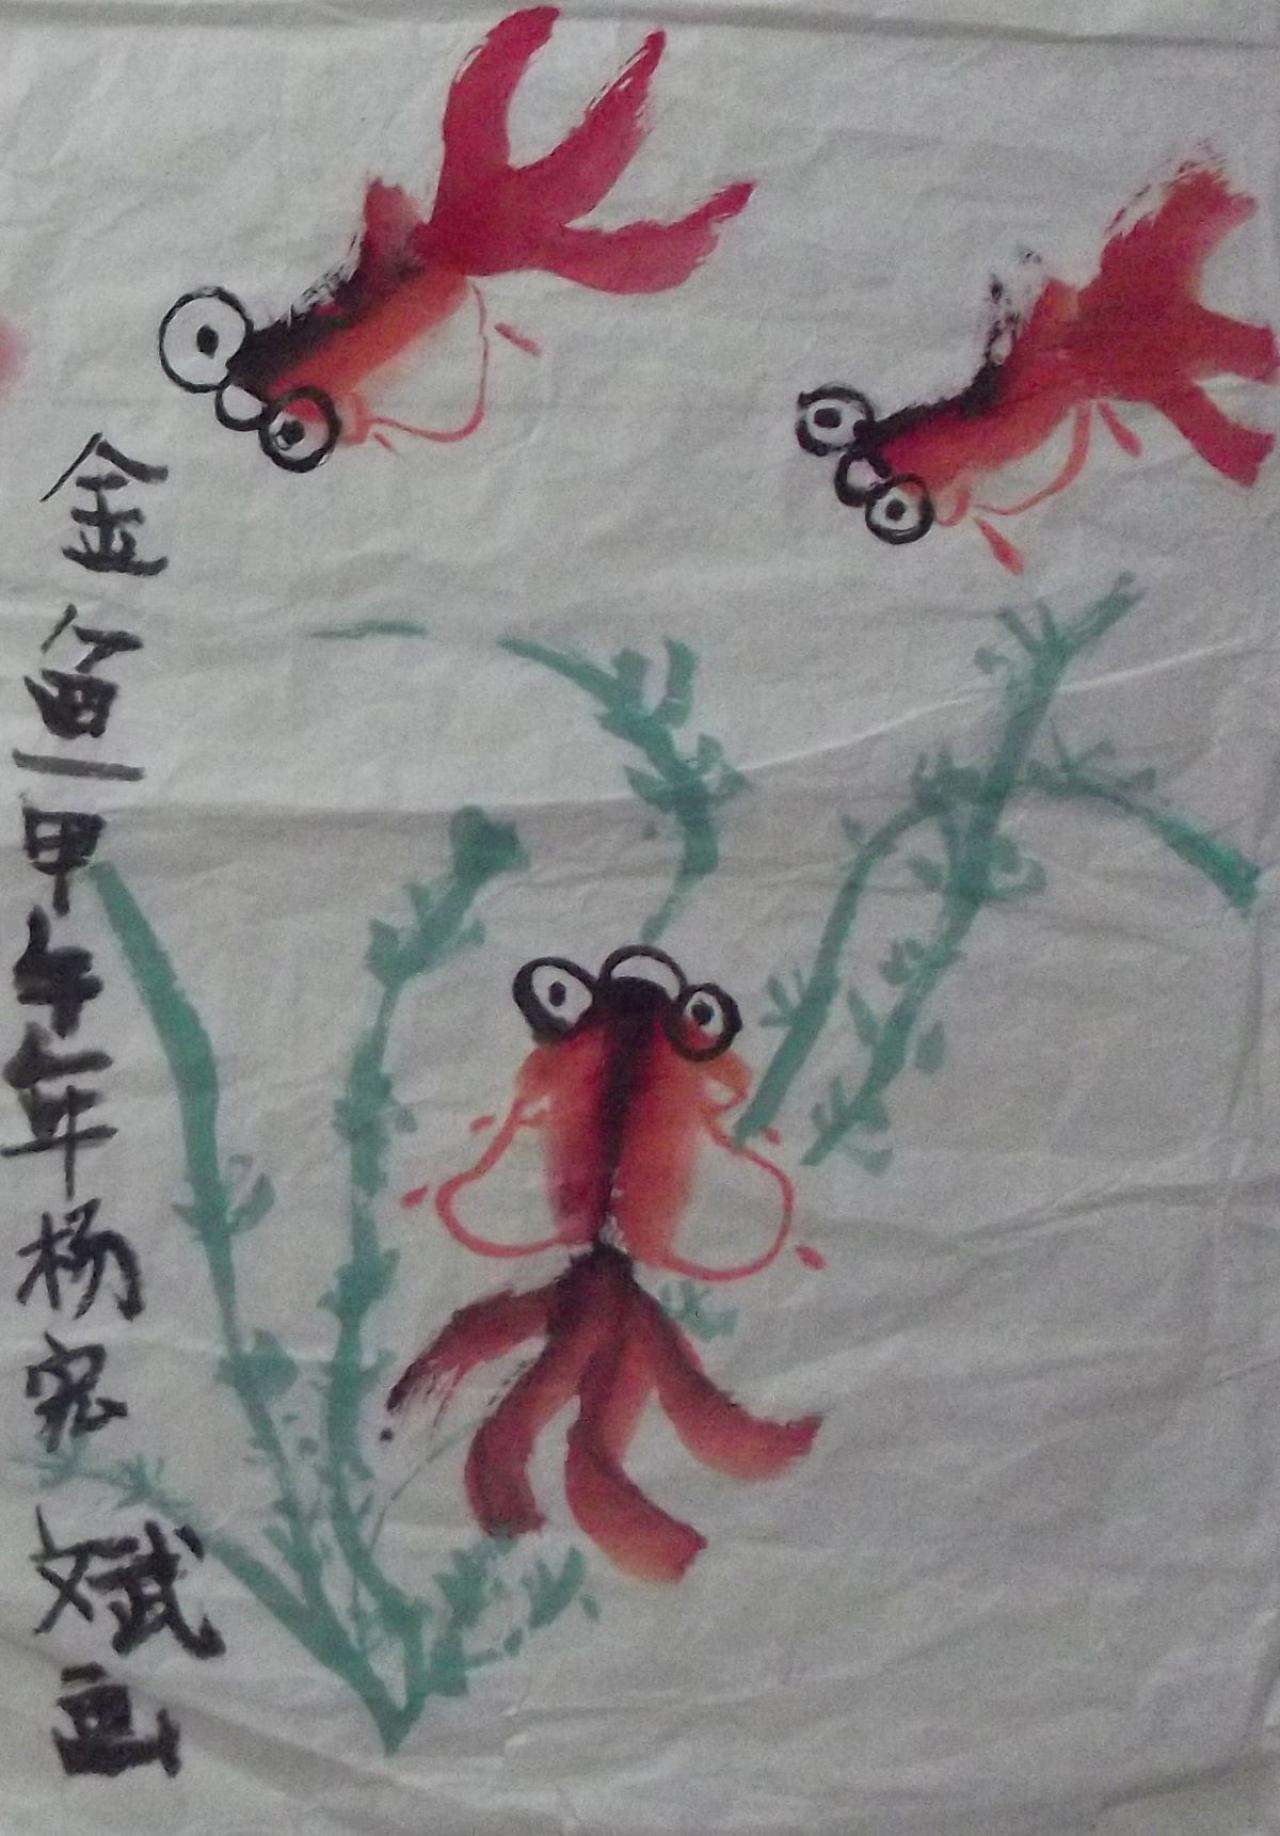 金鱼甲午年杨宏斌画